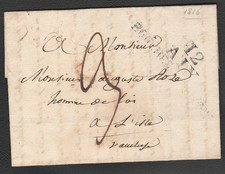 1816
A Monsieur
Monsieur auguste Roze
homme de loi
a L'isle
vaucluse